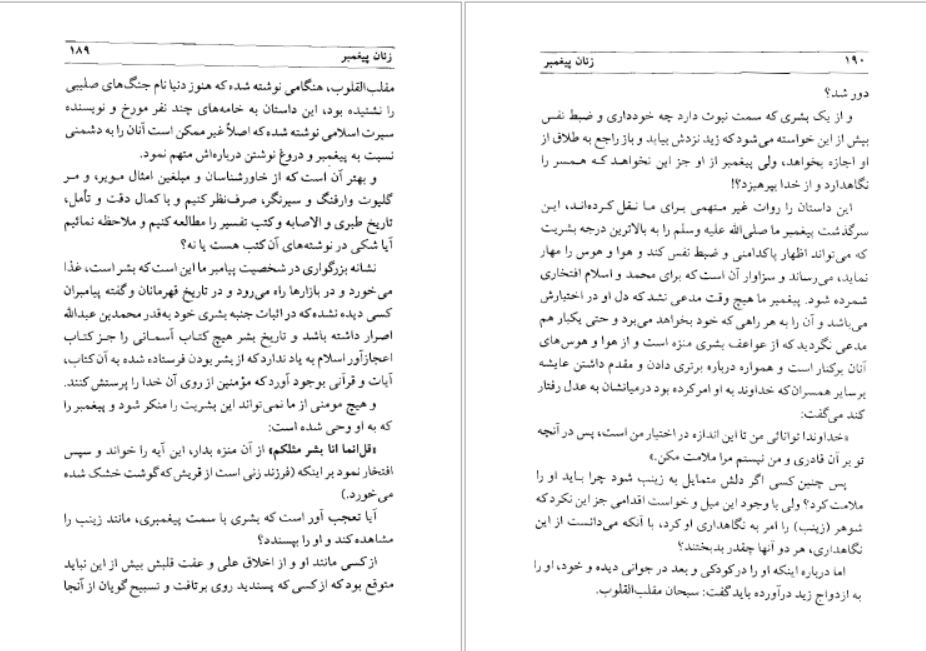 ۱۸۹
زنان پیغمبر
مقلب‌القلوب، هنگامی نوشته شده که هنوز دنیا نام جنگ‌های صلیبی
را نشنیده بود، این داستان به خامه‌های چند نفر مورخ و نویسنده
سیرت اسلامی نوشته شده که اصلاً غیر ممکن است آنان را به دشمنی
نسبت به پیغمبر و دروغ نوشتن درباره‌اش متهم نمود.
و بهتر آن است که از خاورشناسان و مبلغین امثال مویر، و مر
گلیوت وارفنگ و سیرنگر، صرف‌نظر کنیم و با کمال دقت و تأمل،
تاریخ طبری و الاصابه و کتب تفسیر را مطالعه کنیم و ملاحظه نمائیم
آیا شکی در نوشته‌های آن کتب هست یا نه؟
نشانه بزرگواری در شخصیت پیامبر ما این است که بشر است، غذا
می‌خورد و در بازارها راه می‌رود و در تاریخ قهرمانان و گفته پیامبران
کسی دیده نشده که در اثبات جنبه بشری خود به‌قدر محمدبن عبدالله
اصرار داشته باشد و تاریخ بشر هیچ کتاب آسمانی را جز کتاب
اعجازآور اسلام به یاد ندارد که از بشر بودن فرستاده شده به آن کتاب،
آیات و قرآنی بوجود آورد که مؤمنین از روی آن خدا را پرستش کنند.
و هیچ مومنی از ما نمی‌تواند این بشریت را منکر شود و پیغمبر را
که به او وحی شده است:
«قل‌انما انا بشر مثلکم» از آن منزه بدار، این آیه را خواند و سپس
افتخار نمود بر اینکه (فرزند زنی است از قریش که گوشت خشک شده
می‌خورد.)
آیا تعجب آور است که بشری با سمت پیغمبری، مانند زینب را
مشاهده کند و او را بپسندد؟
از کسی مانند او و از اخلاق علی و عفت قلبش بیش از این نباید
متوقع بود که از کسی که پسندید روی برتافت و تسبیح گویان از آنجا
۱۹۰
زنان پیغمبر
دور شد؟
و از یک بشری که سمت نبوت دارد چه خودداری و ضبط نفس
بیش از این خواسته می‌شود که زید نزدش بیاید و باز راجع به طلاق از
او اجازه بخواهد، ولی پیغمبر از او جز این نخواهد که همسر را
نگاهدارد و از خدا بپرهیزد؟!
این داستان را روات غیر متهمی برای ما نقل کرده‌اند، این
سرگذشت پیغمبر ما صلی‌الله علیه وسلم را به بالاترین درجه بشریت
که می‌تواند اظهار پاکدامنی و ضبط نفس کند و هوا و هوس را مهار
نماید، می‌رساند و سزاوار آن است که برای محمد و اسلام افتخاری
شمرده شود. پیغمبر ما هیچ وقت مدعی نشد که دل او در اختیارش
می‌باشد و آن را به هر راهی که خود بخواهد می‌برد و حتی یکبار هم
مدعی نگردید که از عواعف بشری منزه است و از هوا و هوس‌های
آنان برکنار است و همواره درباره برتری دادن و مقدم داشتن عایشه
برسایر همسران که خداوند به او امر کرده بود درمیانشان به عدل رفتار
کند می‌گفت:
«خداوندا توانائی من تا این اندازه در اختیار من است، پس در آنچه
تو بر آن قادری و من نیستم مرا ملامت مکن.»
پس چنین کسی اگر دلش متمایل به زینب شود چرا باید او را
ملامت کرد؟ ولی با وجود این میل و خواست اقدامی جز این نکرد که
شوهر (زینب) را امر به نگاهداری او کرد، با آنکه می‌دانست از این
نگاهداری، هر دو آنها چقدر بدبختند؟
اما درباره اینکه او را در کودکی و بعد در جوانی دیده و خود، او را
به ازدواج زید درآورده باید گفت: سبحان مقلب‌القلوب.